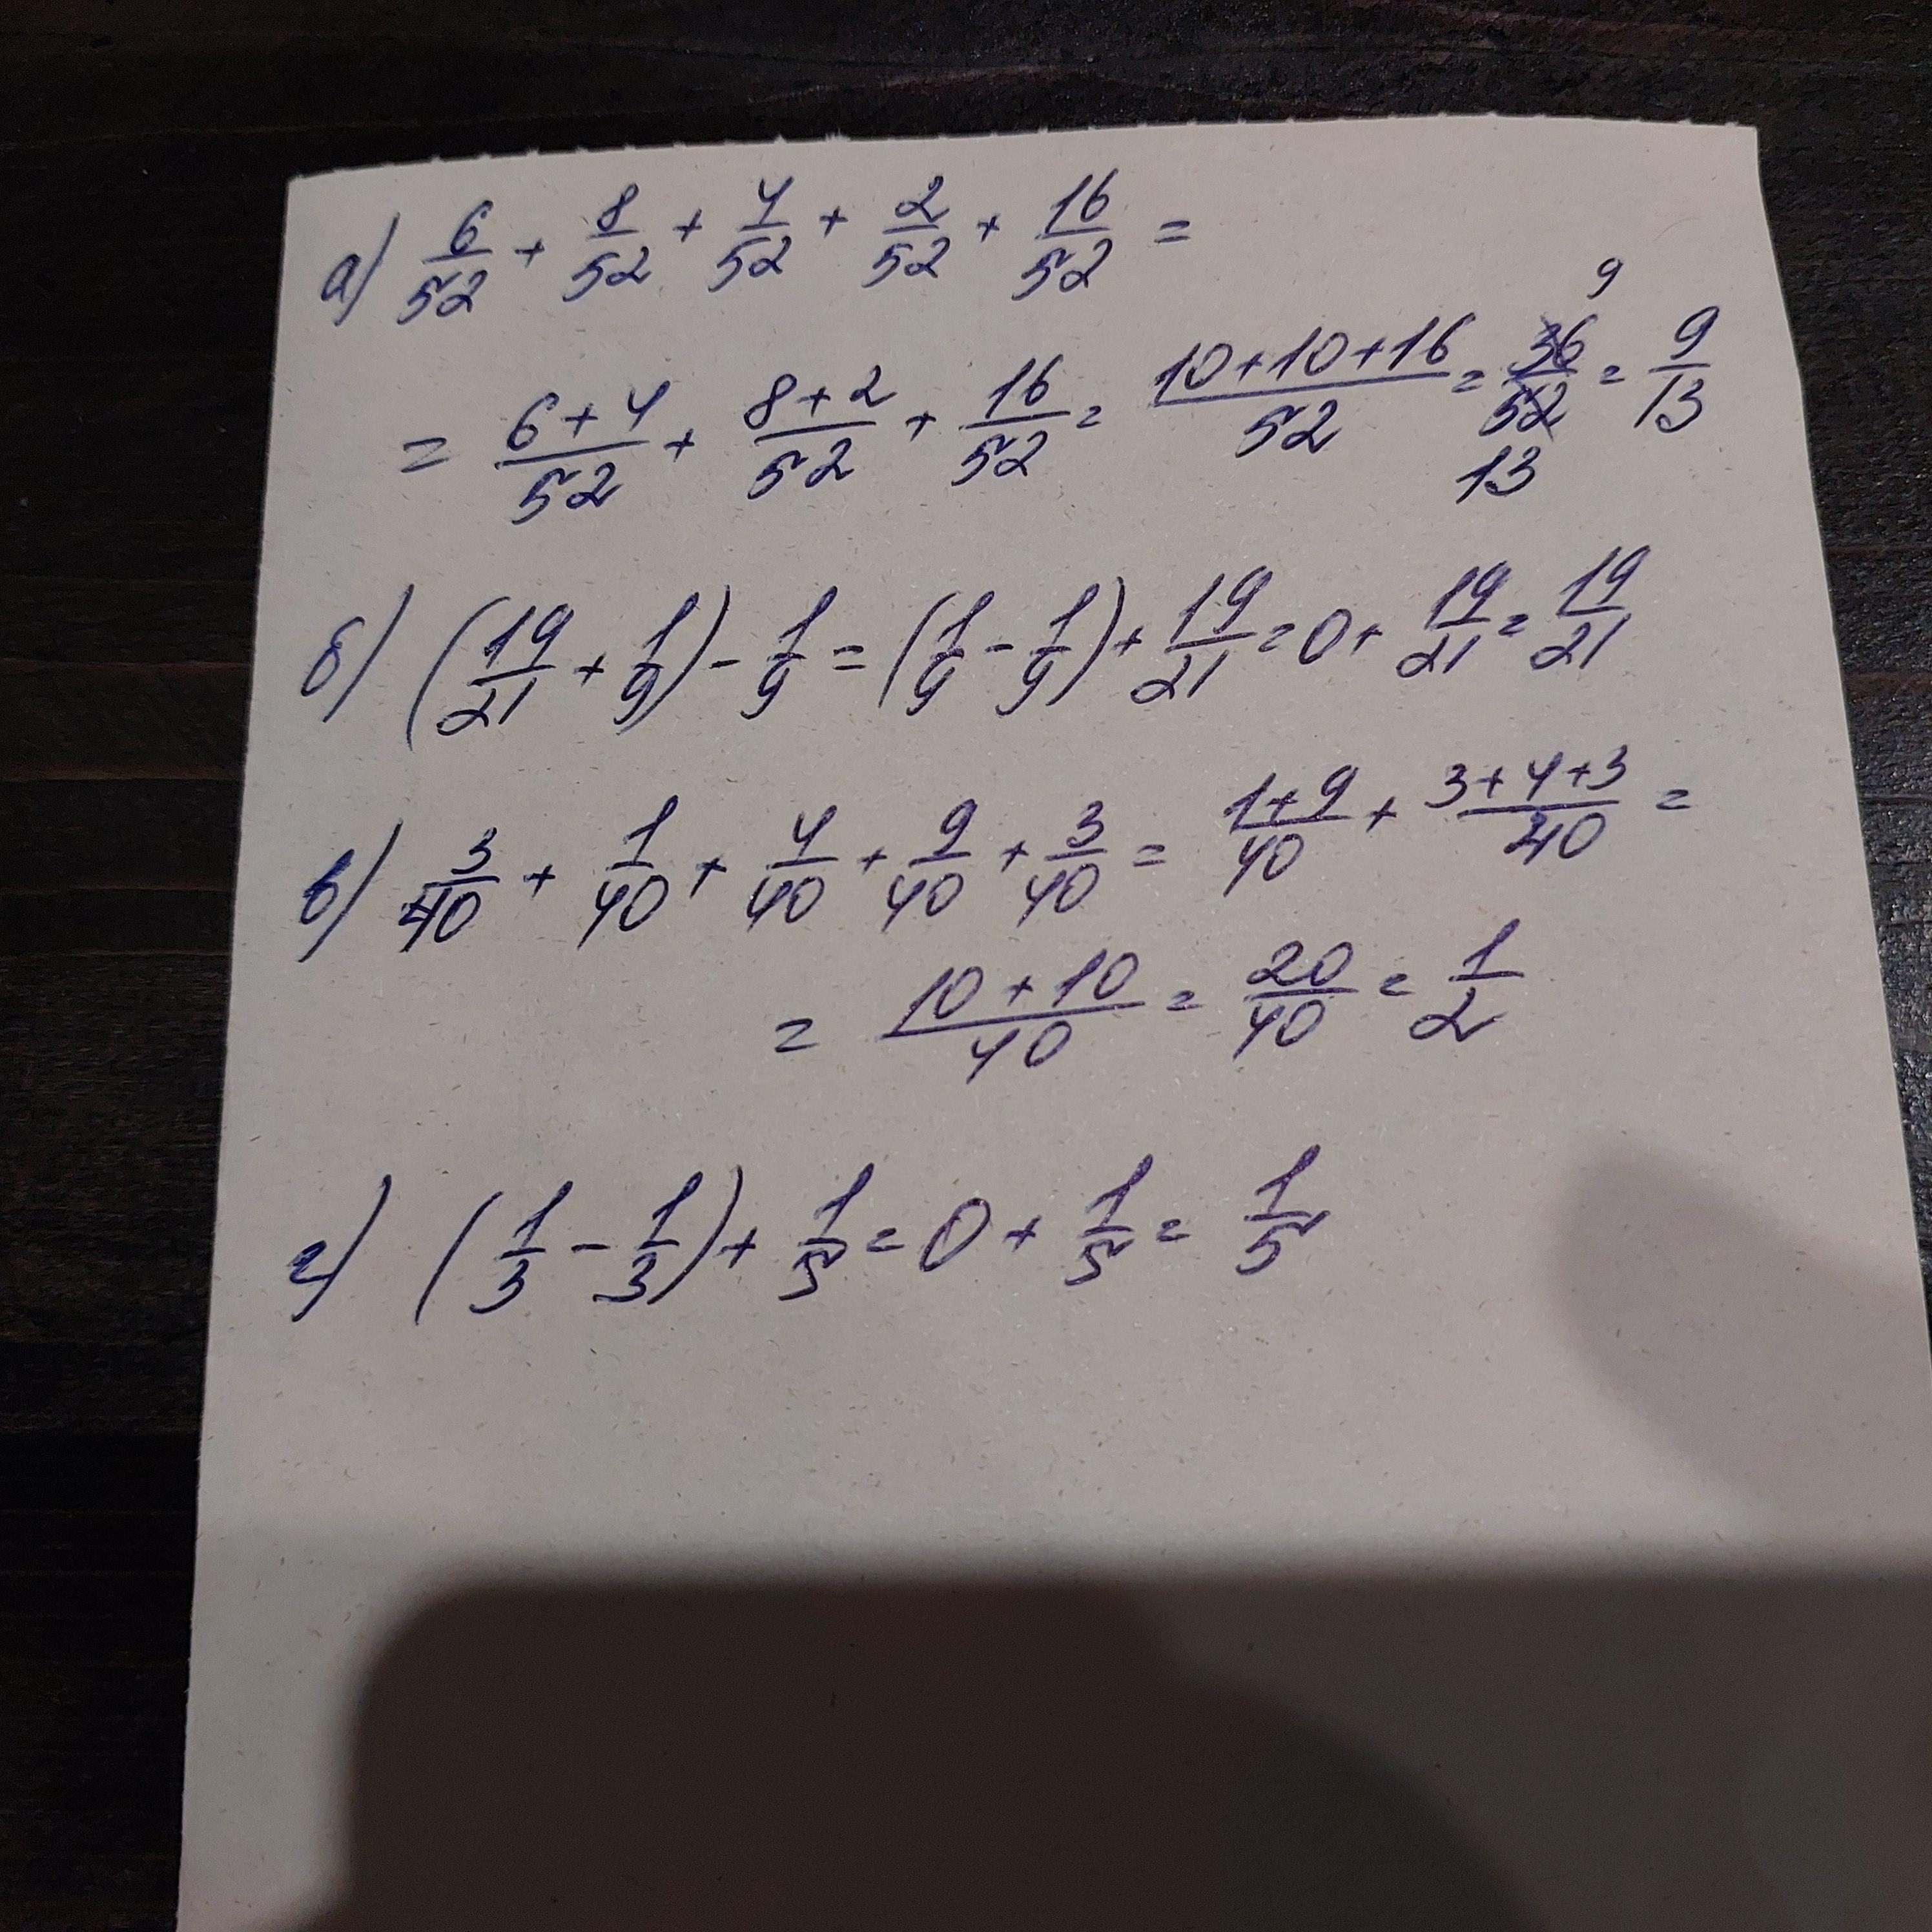 а) 6/52 + 8/52 + 4/52 + 2/52 + 16/52 =
= (6+4)/52 + (8+2)/52 + 16/52 = (10+10+16)/52 = 36/52 = 9/13
9
13
б) (19/21 + 1/9) - 1/9 = (1/9 - 1/9) + 19/21 = 0 + 19/21 = 19/21
в) 3/40 + 1/40 + 4/40 + 9/40 + 3/40 = (1+9)/40 + (3+4+3)/40 =
= (10+10)/40 = 20/40 = 1/2
г) (1/3 - 1/3) + 1/5 = 0 + 1/5 = 1/5